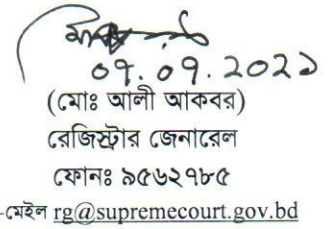 ০৭.০৭.২০২১
(মোঃ আলী আকবর)
রেজিস্ট্রার জেনারেল
ফোনঃ ৯৫৬২৭৮৫
-মেইল rg@supremecourt.gov.bd